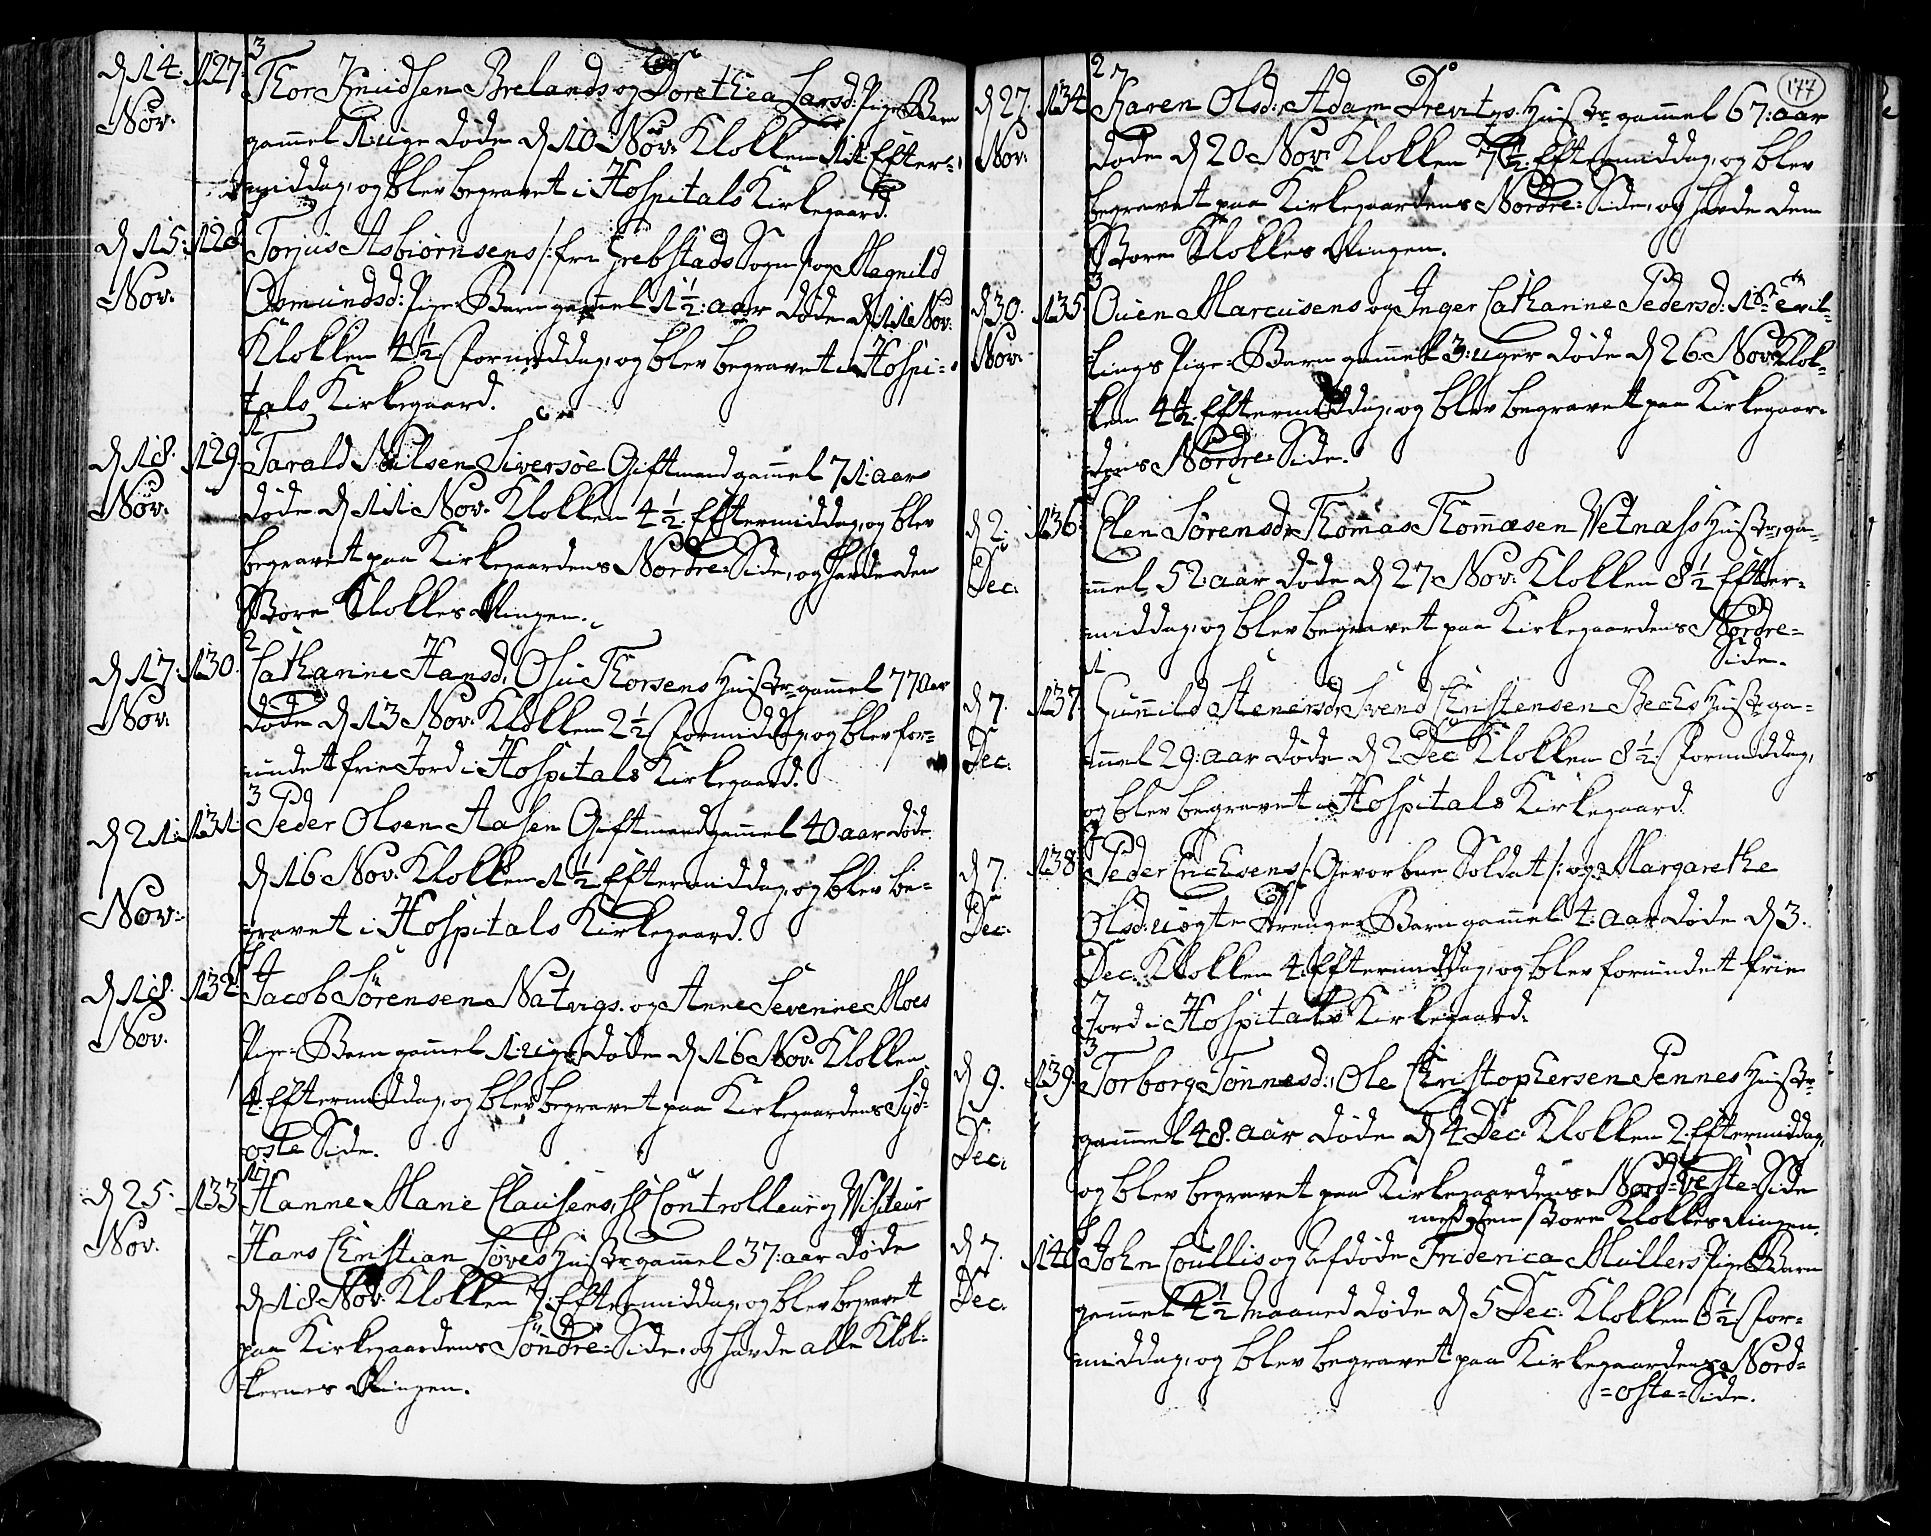 3
d 14. 127. Thor Knudsen Brelands og Dorethea Larsd: Pige Barn
Nov. gammel 1. uge døde d 10 Nov: Klokken 11. Efter-
middag, og blev begravet i Hospitals Kirkegaard.
d 15. 128. Torjus Asbiørnsens /: fra Grebstads Sogn :/ og Magnild
Nov. Osmundsd: Pige-Barn gammel 1½: aar døde d 11 Nov:
Klokken 4½ Formiddag, og blev begravet i Hospi-
tals Kirkegaard.
1
d 18. 129. Tarald Nilsen Siversøe Giftmand gammel 71: aar
Nov. døde d 11 Nov. Klokken 4½ Eftermiddag, og blev
begravet paa Kirkegaardens Nordre-Side, og havde den
Store Klokkes Ringen.
2
d 17. 130. Cathanine Hansd, Osu Thorsens Hustr: gammel 77 Aar
Nov. døde d 13 Nov. Klokken 2½ Formiddag, og blev for-
undet frie Jord i Hospitals Kirkegaard.
3
d 21. 131. Peder Olsen Aasen Giftmand gammel 40 aar døde
d 16 Nov. Klokken 1½ Eftermiddag, og blev be-
Nov: gravet i Hospitals Kirkegaard.
d 18. 132. Jacob Sørensen Natvigs. og Anne Severine Moes
Nov. Pige-Barn gammel 1. uge døde d 16 Nov. Klokken
4. Eftermiddag, og blev begravet paa Kirkegaardens Syd-
oste Side.
17
d 25. 133. Hanne Marie Clausens, Controlleur og Visiteur
Nov. Hans Christian Løves Hustr: gammel 37: aar døde
d 18 Nov. Klokken 7. Eftermiddag, og blev begravet
paa Kirkegaardens Søndre-Side, og havde alle Klok-
kernes Ringen.
177
2
d 27. 134. Karen Olsd: Adam Drevitzs. Hustr: gammel 67: aar
Nov. døde d 20 Nov: Klokken 7½. Eftermiddag, og blev
begravet paa Kirkegaardens Nordre-Side, og havde den
Store Klokkes Ringen.
3
d 30. 135. Ouen Marcusens og Inger Cathanine Pedersd: 1ste Tvil-
Nov. lings Pige-Barn gammel 3: uger døde d 26 Nov. Klok-
ken 4½. Eftermiddag, og blev begravet paa Kirkegaar-
dens Nordre-Side.
d 2. 136. Elen Sørensdr Thomas Thomæsen Vetnæss Hustr: ga-
Dec. mmel 52: aar døde d 27 Nov: Klokken 8½ Efter-
middag, og blev begravet paa Kirkegaardens Nordre-
Side.
1
d 7. 137. Gunnild Stenersdr Svend Christensen Bechs Hustr: ga-
Dec. mmel 29: aar døde d 2 Dec Klokken 8½: Formiddag,
og blev begravet i Hospitals Kirkegaard.
2
d 7. 138. Peder Erichsens /: Gevorben Soldat :/ og Margarethe
Dec. Olsd: uægte Drenge-Barn gammel 4: aar døde d 3.
Dec. Klokken 4. Eftermiddag, og blev forundet frie
Jord i Hospitals Kirkegaard.
3
d 9. 139. Torborg Tønnesd:, Ole Christophersen Pennes Hustr:
Dec. gammel 48. aar døde d 4 Dec. Klokken 2. Eftermiddag,
og blev begravet paa Kirkegaardens Nord-Veste-Side
med den store Klokkes Ringen.
d 7. 140. John Coullis og afdøde Friderica Mullers Pige-Barn
Dec. gammel 4½ Maaned døde d 5 Dec. Klokken 6½ For-
middag, og blev begravet paa Kirkegaardens Nord-
-oste-Side.